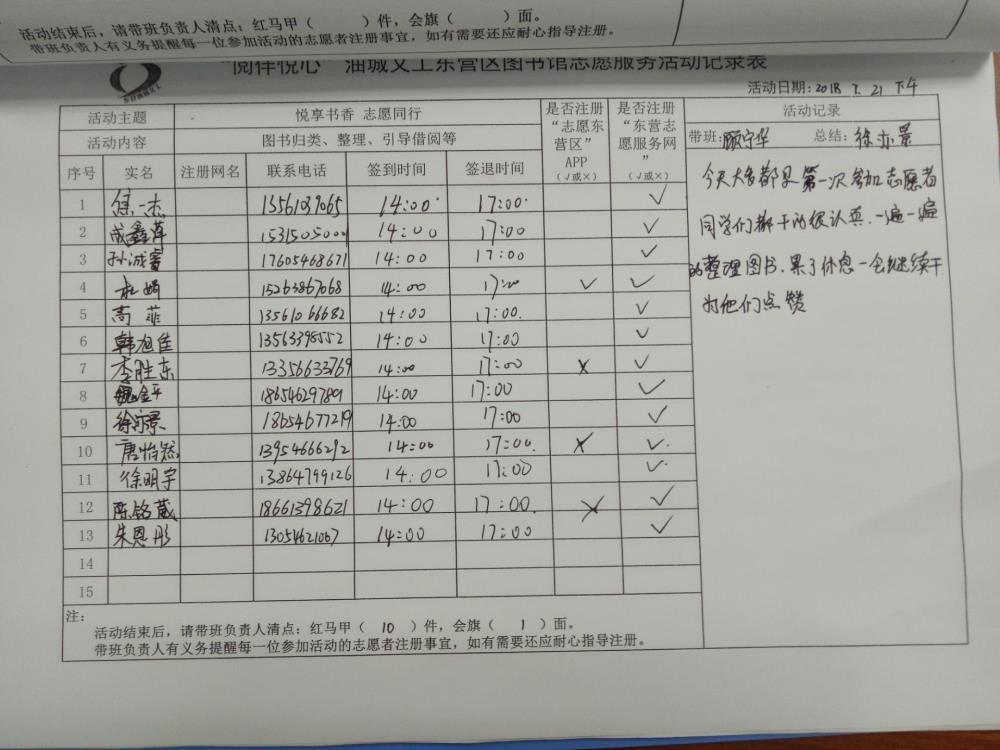 活动结束后，请带班负责人清点：红马甲（ ）件，会旗（ ）面。
带班负责人有义务提醒每一位参加活动的志愿者注册事宜，如有需要还应耐心指导注册。
“阅伴悦心” 油城义工东营区图书馆志愿服务活动记录表
活动日期：2018 7. 21 下午
活动主题 悦享书香 志愿同行 是否注册“志愿东营区”APP（√或×） 是否注册“东营志愿服务网”（√或×） 活动记录
活动内容 图书归类、整理、引导借阅等 带班：顾宁华 总结：徐亦景
序号 实名 注册网名 联系电话 签到时间 签退时间
1 焦一杰 13561039065 14:00 17:00 √
2 成鑫萍 1531505000 14:00 17:00 √
3 孙诚 17605468671 14:00 17:00 √
4 15263867068 14:00 17:00 √ √
5 高菲 13561066682 14:00 17:00. √
6 韩旭佳 13563398552 14:00 17:00 √
7 李胜东 13356633769 14:00 17:00 × √
8 魏金平 18654629780 14:00 17:00 √
9 徐亦景 18654677219 14:00 17:00 √
10 唐怡然 13954666292 14:00 17:00. × √
11 徐明宇 13864799126 14:00 17:00 √
12 陈铭葳 18661398621 14:00 17:00. × √
13 朱恩彤 13054621067 14:00 17:00 √
14
15
今天大多都是第一次参加志愿者
同学们都干的很认真.一遍一遍
的整理图书.累了休息一会继续干
为他们点赞
注：
活动结束后，请带班负责人清点：红马甲（ 10 ）件，会旗（ 1 ）面。
带班负责人有义务提醒每一位参加活动的志愿者注册事宜，如有需要还应耐心指导注册。